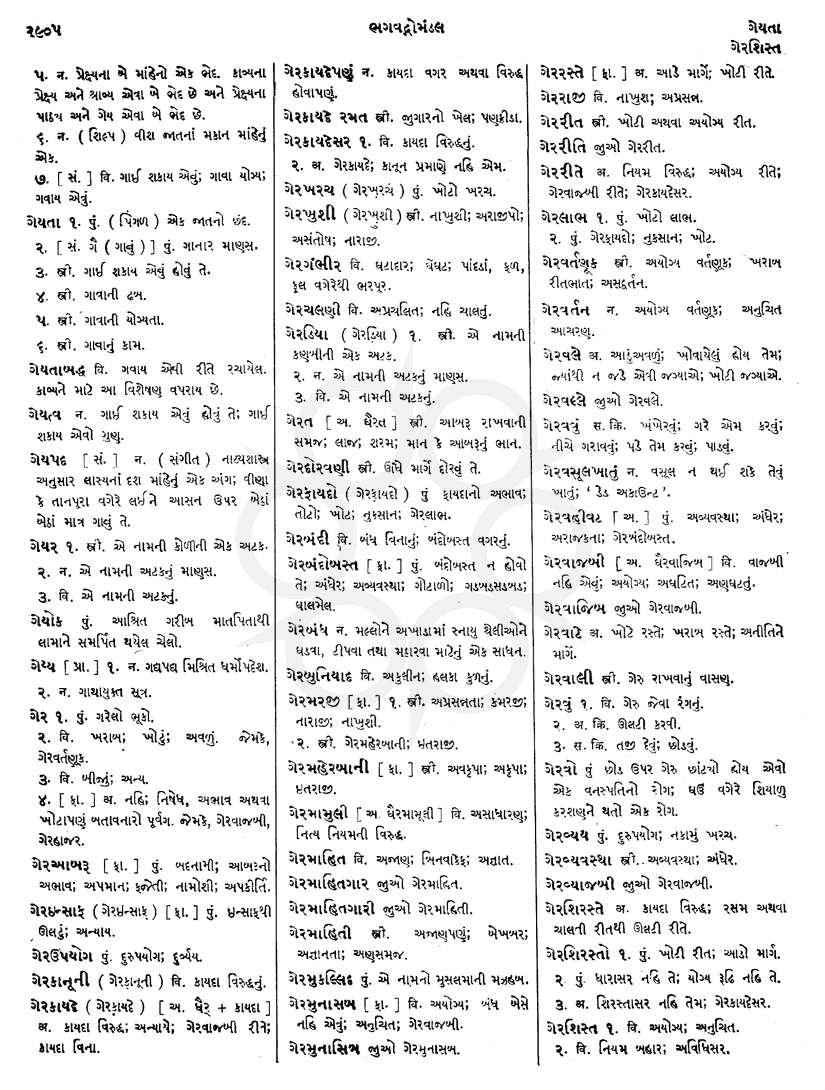 ૨૯૦૫
ભગવદ્ગોમંડલ
ગેયતા
ગેરશિસ્ત
૫. ન. પ્રેક્ષ્યના બે માંહેનો એક ભેદ. કાવ્યના
પ્રેક્ષ્ય અને શ્રાવ્ય એવા બે ભેદ છે અને પ્રેક્ષ્યના
પાઠ્ય અને ગેય એવા બે ભેદ છે.
૬. ન. ( શિલ્પ ) વીશ જાતનાં મકાન માંહેનું
એક.
૭. [ સં. ] વિ. ગાઈ શકાય એવું; ગાવા યોગ્ય;
ગવાય એવું.
ગેયતા ૧. પું. ( પિંગળ ) એક જાતનો છંદ.
૨. [ સં. ગૈ ( ગાવું ) ] પું. ગાનાર માણસ.
૩. સ્ત્રી. ગાઈ શકાય એવું હોવું તે.
૪. સ્ત્રી. ગાવાની ઢબ.
૫. સ્ત્રી. ગાવાની યોગ્યતા.
૬. સ્ત્રી. ગાવાનું કામ.
ગેયતાબદ્ધ વિ. ગવાય એવી રીતે રચાયેલ.
કાવ્યને માટે આ વિશેષણ વપરાય છે.
ગેયત્વ ન. ગાઈ શકાય એવું હોવું તે; ગાઈ
શકાય એવો ગુણ.
ગેયપદ [ સં. ] ન. ( સંગીત ) નાટ્યશાસ્ત્ર
અનુસાર લાસ્યનાં દશ માંહેનું એક અંગ; વીણા
કે તાનપૂરા વગેરે લઈને આસન ઉપર બેઠાં
બેઠાં માત્ર ગાવું તે.
ગેયર ૧. સ્ત્રી. એ નામની કોળીની એક અટક.
૨. ન. એ નામની અટકનું માણસ.
૩. વિ. એ નામની અટકનું.
ગેયોક પું. આશ્રિત ગરીબ માતપિતાથી
લામાને સમર્પિત થયેલ ચેલો.
ગેય્ય [ પ્રા. ] ૧. ન. ગદ્યપદ્ય મિશ્રિત ધર્મોપદેશ.
૨. ન. ગાથાયુક્ત સૂત્ર.
ગેર ૧. પું. ગરેલો ભૂકો.
૨. વિ. ખરાબ; ખોટું; અવળું. જેમકે,
ગેરવર્તણૂક.
૩. વિ. બીજું; અન્ય.
૪. [ ફા. ] અ. નહિ; નિષેધ, અભાવ અથવા
ખોટાપણું બતાવનારો પૂર્વગ. જેમકે, ગેરવાજબી,
ગેરહાજર.
ગેરઆબરૂ [ ફા. ] પું. બદનામી; આબરૂનો
અભાવ; અપમાન; ફજેતી; નામોશી; અપકીર્તિ.
ગેરઇન્સાફ ( ગેરઇન્સાફ઼ ) [ ફા. ] પું. ઇન્સાફથી
ઊલટું; અન્યાય.
ગેરઉપયોગ પું. દુરુપયોગ; દુર્વ્યય.
ગેરકાનૂની ( ગેરક઼ાનૂની ) વિ. કાયદા વિરુદ્ધનું.
ગેરકાયદે ( ગેરક઼ાયદે ) [ અ. ઘૈર્ + કાયદા ]
અ. કાયદા વિરુદ્ધ; અન્યાયે; ગેરવાજબી રીતે;
કાયદા વિના.
ગેરકાયદેપણું ન. કાયદા વગર અથવા વિરુદ્ધ
હોવાપણું.
ગેરકાયદે રમત સ્ત્રી. જુગારનો ખેલ; પણક્રીડા.
ગેરકાયદેસર ૧. વિ. કાયદા વિરુદ્ધનું.
૨. અ. ગેરકાયદે; કાનૂન પ્રમાણે નહિ એમ.
ગેરખરચ ( ગેરખ઼રચ ) પું. ખોટો ખરચ.
ગેરખુશી ( ગેરખ઼ુશી ) સ્ત્રી. નાખુશી; અરાજીપો;
અસંતોષ; નારાજી.
ગેરગંભીર વિ. ઘટાદાર; ઘેઘટ; પાંદડાં, ફળ,
ફૂલ વગેરેથી ભરપૂર.
ગેરચલણી વિ. અપ્રચલિત; નહિ ચાલતું.
ગેરડિયા ( ગેરડ઼િયા ) ૧. સ્ત્રી. એ નામની
કણબીની એક અટક.
૨. ન. એ નામની અટકનું માણસ.
૩. વિ. એ નામની અટકનું.
ગેરત [ અ. ઘૈરત ] સ્ત્રી. આબરૂ રાખવાની
સમજ; લાજ; શરમ; માન કે આબરૂનું ભાન.
ગેરદોરવણી સ્ત્રી. ઊંધે માર્ગે દોરવું તે.
ગેરફાયદો ( ગેરફ઼ાયદો ) પું ફાયદાનો અભાવ;
તોટો; ખોટ; નુકસાન; ગેરલાભ.
ગેરબંદી વિ. બંધ વિનાનું; બંદોબસ્ત વગરનું.
ગેરબંદોબસ્ત [ ફા. ] પું. બંદોબસ્ત ન હોવો
તે; અંધેર; અવ્યવસ્થા; ગોટાળો; ગડબડસડબડ;
ઘાલમેલ.
ગેરબંધ ન. મલ્લોને અખાડામાં સ્નાયુ થેલીઓને
ઘડવા, ટીપવા તથા મઠારવા માટેનું એક સાધન.
ગેરબુનિયાદ વિ. અકુલીન; હલકા કુળનું.
ગેરમરજી [ ફા. ] ૧. સ્ત્રી. અપ્રસન્નતા; કમરજી;
નારાજી; નાખુશી.
૨. સ્ત્રી. ગેરમહેરબાની; ઇતરાજી.
ગેરમહેરબાની [ ફા. ] સ્ત્રી. અવકૃપા; અકૃપા;
ઇતરાજી.
ગેરમામુલી [ અ. ઘૈરમામૂલી ] વિ. અસાધારણ;
નિત્ય નિયમની વિરુદ્ધ.
ગેરમાહિત વિ. અજાણ; બિનવાકેફ; અજ્ઞાત.
ગેરમાહિતગાર જુઓ ગેરમાહિત.
ગેરમાહિતગારી જુઓ ગેરમાહિતી.
ગેરમાહિતી સ્ત્રી. અજાણપણું; બેખબર;
અજ્ઞાનતા; અણસમજ.
ગેરમુકલ્લિદ પું. એ નામનો મુસલમાની મઝહબ.
ગેરમુનાસબ [ ફા. ] વિ. અયોગ્ય; બંધ બેસે
નહિ એવું; અનુચિત; ગેરવાજબી.
ગેરમુનાસિબ જુઓ ગેરમુનાસબ.
ગેરરસ્તે [ ફા. ] અ. આડે માર્ગે; ખોટી રીતે.
ગેરરાજી વિ. નાખુશ; અપ્રસન્ન.
ગેરરીત સ્ત્રી. ખોટી અથવા અયોગ્ય રીત.
ગેરરીતિ જુઓ ગેરરીત.
ગેરરીતે અ. નિયમ વિરુદ્ધ; અયોગ્ય રીતે;
ગેરવાજબી રીતે; ગેરકાયદેસર.
ગેરલાભ ૧. પું. ખોટો લાભ.
૨. પું. ગેરફાયદો; નુકસાન; ખોટ.
ગેરવર્તણૂક સ્ત્રી. અયોગ્ય વર્તણૂક; ખરાબ
રીતભાત; અસદ્વર્તન.
ગેરવર્તન ન. અયોગ્ય વર્તણૂક; અનુચિત
આચરણ.
ગેરવલે અ. આડુંઅવળું; ખોવાયેલું હોય તેમ;
જ્યાંથી ન જડે એવી જગ્યાએ; ખોટી જગ્યાએ.
ગેરવલ્લે જુઓ ગેરવલે.
ગેરવવું સ. ક્રિ. ખંખેરવું; ગરે એમ કરવું;
નીચે ગરાવવું; પડે તેમ કરવું; પાડવું.
ગેરવસૂલખાતું ન. વસૂલ ન થઈ શકે તેવું
ખાતું; ‘ ડેડ અકાઉન્ટ ’.
ગેરવહીવટ [ અ. ] પું. અવ્યવસ્થા; અંધેર;
અરાજકતા; ગેરબંદોબસ્ત.
ગેરવાજબી [ અ. ઘૈરવાજિબ ] વિ. વાજબી
નહિ એવું; અયોગ્ય; અઘટિત; અણઘટતું.
ગેરવાજિબ જુઓ ગેરવાજબી.
ગેરવાટે અ. ખોટે રસ્તે; ખરાબ રસ્તે; અનીતિને
માર્ગે.
ગેરવાલી સ્ત્રી. ગેરુ રાખવાનું વાસણ.
ગેરવું ૧. વિ. ગેરુ જેવા રંગનું.
૨. અ. ક્રિ. ઊલટી કરવી.
૩. સ. ક્રિ. તજી દેવું; છોડવું.
ગેરવો પું છોડ ઉપર ગેરુ છાંટ્યો હોય એવો
એક વનસ્પતિનો રોગ; ઘઉં વગેરે શિયાળુ
કરશણને થતો એક રોગ.
ગેરવ્યય પું. દુરુપયોગ; નકામું ખરચ.
ગેરવ્યવસ્થા સ્ત્રી. અવ્યવસ્થા; અંધેર.
ગેરવ્યાજબી જુઓ ગેરવાજબી.
ગેરશિરસ્તે અ. કાયદા વિરુદ્ધ; રસમ અથવા
ચાલતી રીતથી ઊલટી રીતે.
ગેરશિરસ્તો ૧. પું. ખોટી રીત; આડો માર્ગ.
૨. પું. ધારાસર નહિ તે; યોગ્ય રૂઢિ નહિ તે.
૩. અ. શિરસ્તાસર નહિ તેમ; ગેરકાયદેસર.
ગેરશિસ્ત ૧. વિ. અયોગ્ય; અનુચિત.
૨. વિ. નિયમ બહાર; અવિધિસર.